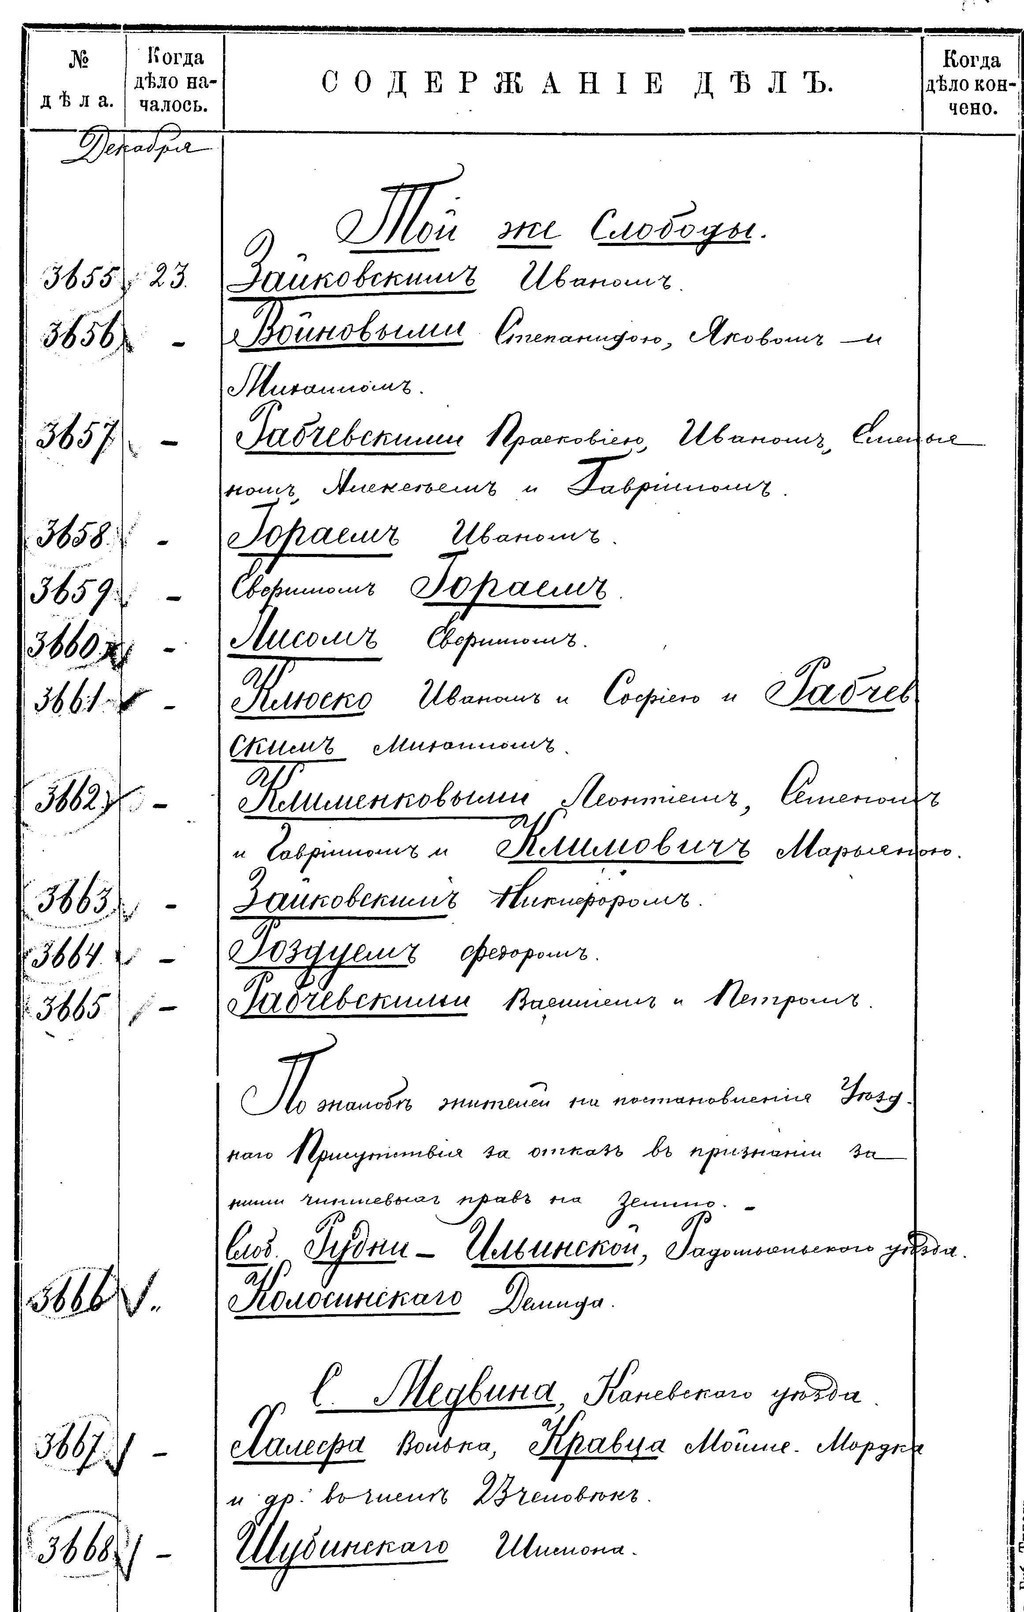 № дѣла.
Когда дѣло на-чалось.
СОДЕРЖАНІЕ ДѢЛЪ.
Когда дѣло кон-чено.
Декабря
Той же Слободы.
3655 23. Зайковскимъ Иваномъ.
3656 - Войновыми Степанидою, Яковомъ и
Михаиломъ.
3657 - Рабчевскими Прасковіею, Иваномъ, Емелья
номъ, Алексѣемъ и Гавріиломъ.
3658. - Гораемъ Иваномъ.
3659. - Свиридомъ Гораемъ.
3660 - Лисомъ
3661 - Клюско Иваномъ и Софіею и Рабчев
скимъ Михаиломъ.
3662 - Клименковыми Леонтіемъ, Семеномъ
и Гавріиломъ и Климовичъ Марьяною.
3663 - Зайковскимъ Никифоромъ.
3664. - Роздуемъ Федоромъ.
3665 - Рабчевскими Василіемъ и Петромъ.
По жалобѣ жителей на постановленія Уѣзд-
наго Присутствія за отказъ въ признаніи за
ними чиншевыхъ правъ на землю. -
Слоб. Рудни - Ильинской, Радомысльского уѣзда.
3666 " Колосинскаго Демида.
С. Медвина, Каневскаго уѣзда.
3667 - Волька, Кравца Мошие. Мордка
и др. въ числѣ 23 человѣкъ.
3668 - Шубинскаго Шимона.